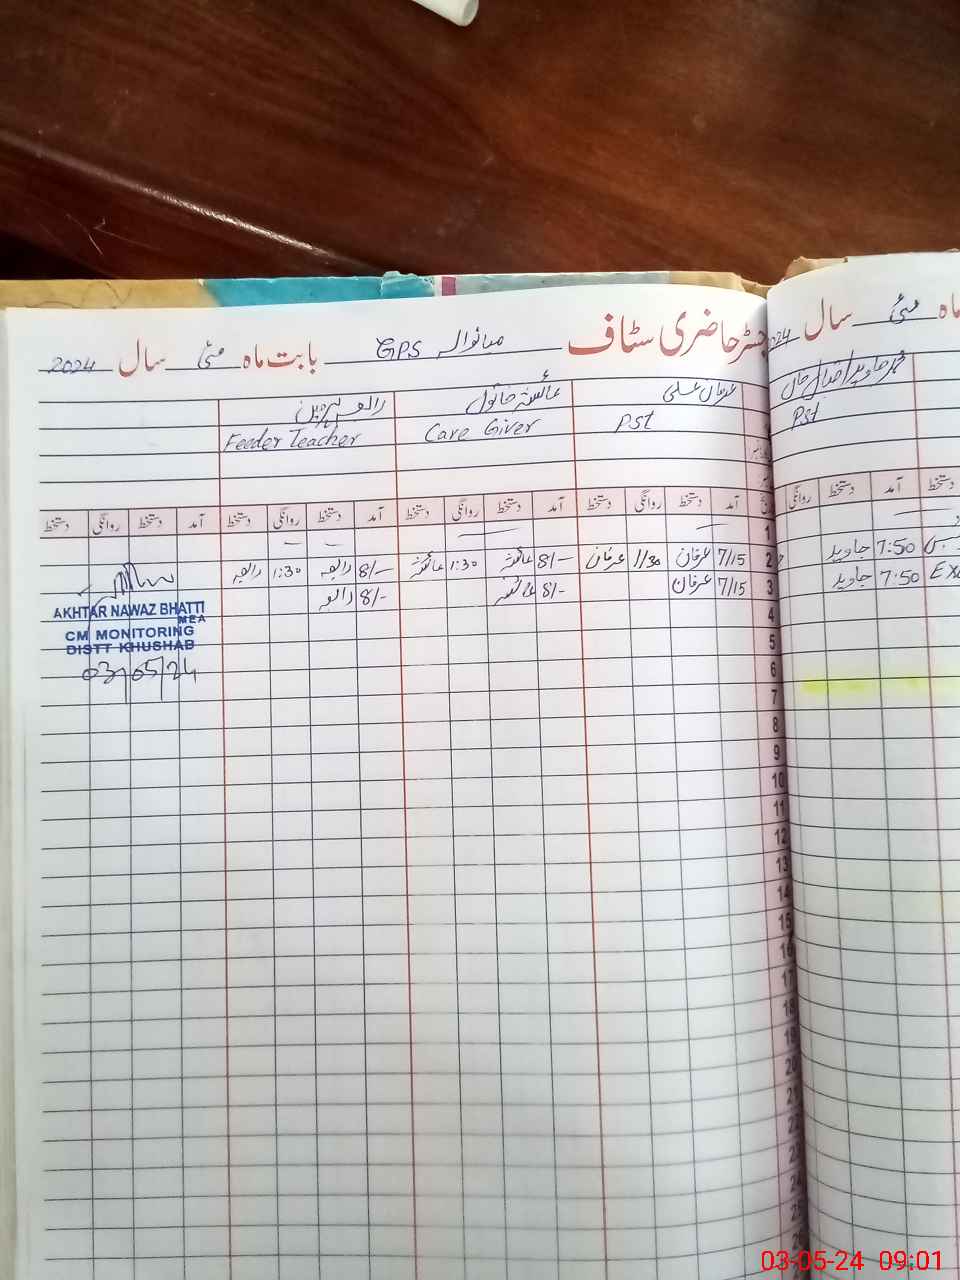 رجسٹر حاضری سٹاف GPS میانوالہ بابت ماہ مئی سال 2024
ماہ مئی سال 2024
عرفان علی عائشہ خاتون رابعہ پروین
PST Care Giver Feeder Teacher
PST
آمد دستخط روانگی دستخط آمد دستخط روانگی دستخط آمد دستخط روانگی دستخط آمد دستخط روانگی دستخط
دستخط آمد دستخط روانگی
1
2 7/15 عرفان 1/30 عرفان 8/- عائشہ 1:30 عائشہ 8/- رابعہ 1:30 رابعہ
7:50 جاوید
3 7/15 عرفان 8/- عائشہ 8/- رابعہ
7:50 جاوید
AKHTAR NAWAZ BHATTI
MEA
CM MONITORING
DISTT KHUSHAB
03/05/24
4
5
6
7
8
9
10
11
12
13
14
15
16
17
18
19
20
21
22
23
24
25
26
03-05-24 09:01